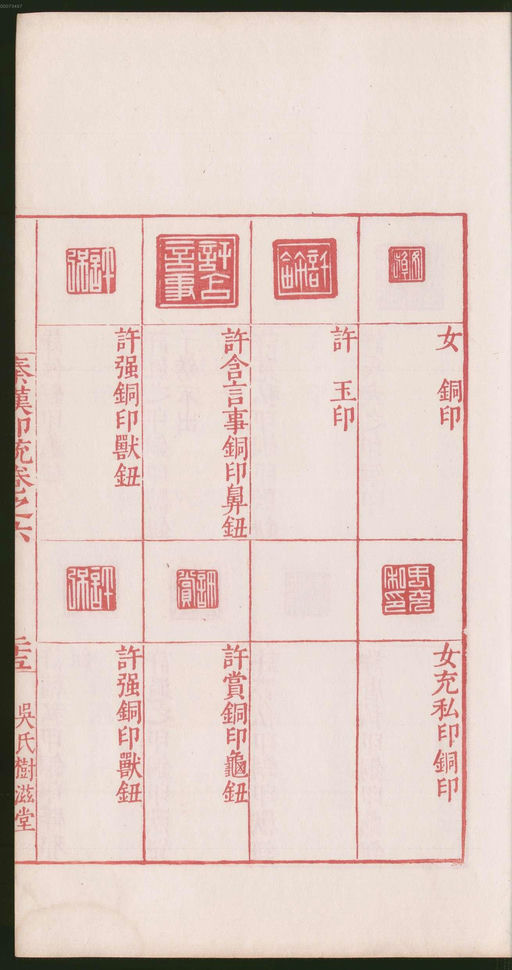 女 銅印
許 玉印
許含言事銅印鼻鈕
許强銅印獸鈕
女充私印銅印
許賞銅印龜鈕
許强銅印獸鈕
秦漢印統卷之六
吳氏樹滋堂
00073487